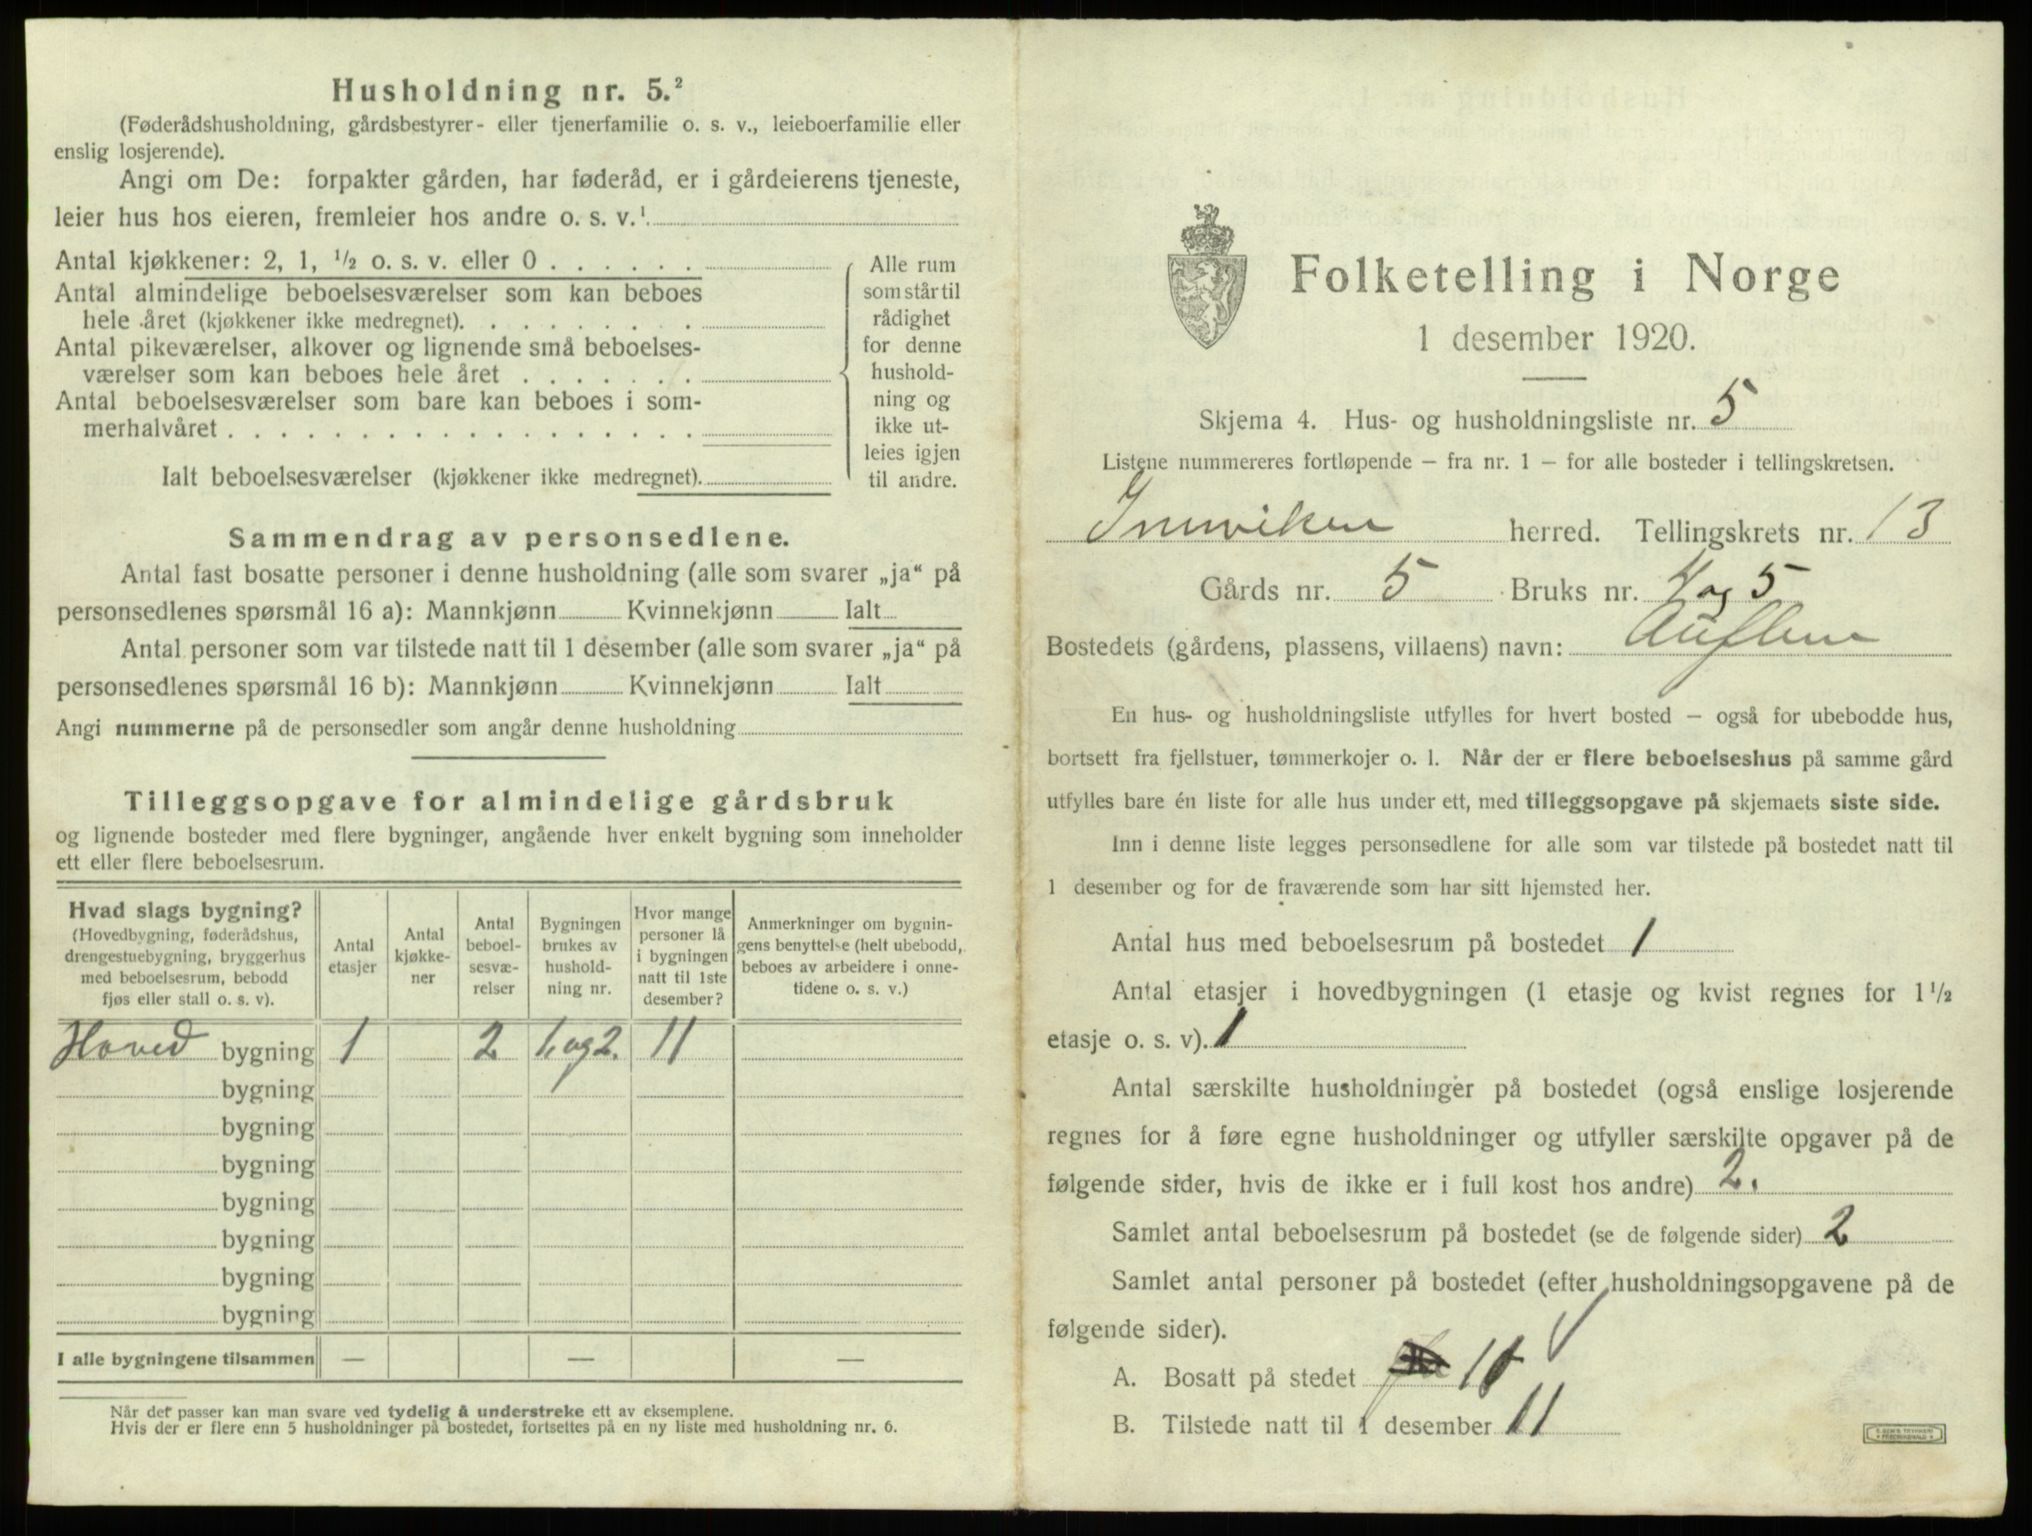 Husholdning nr. 5.²
(Føderådshusholdning, gårdsbestyrer- eller tjenerfamilie o. s. v., leieboerfamilie eller
enslig losjerende).
Angi om De: forpakter gården, har føderåd, er i gårdeierens tjeneste,
leier hus hos eieren, fremleier hos andre o. s. v.¹
Antal kjøkkener: 2, 1, ½ o. s. v. eller 0 . . . . . .
Antal almindelige beboelsesværelser som kan beboes
hele året (kjøkkener ikke medregnet). . . . . . . . .
Antal pikeværelser, alkover og lignende små beboelses-
værelser som kan beboes hele året . . . . . . .
Antal beboelsesværelser som bare kan beboes i som-
merhalvåret . . . . . . . . . . . . . . . . . .
Alle rum
som står til
rådighet
for denne
hushold-
ning og
ikke ut-
leies igjen
til andre.
Ialt beboelsesværelser (kjøkkener ikke medregnet).
Sammendrag av personsedlene.
Antal fast bosatte personer i denne husholdning (alle som svarer „ja“ på
personsedlenes spørsmål 16 a): Mannkjønn Kvinnekjønn Ialt
Antal personer som var tilstede natt til 1 desember (alle som svarer „ja“ på
personsedlenes spørsmål 16 b): Mannkjønn Kvinnekjønn Ialt
Angi nummerne på de personsedler som angår denne husholdning
Tilleggsopgave for almindelige gårdsbruk
og lignende bosteder med flere bygninger, angående hver enkelt bygning som inneholder
ett eller flere beboelsesrum.
Hvad slags bygning?
(Hovedbygning, føderådshus,
drengestuebygning, bryggerhus
med beboelsesrum, bebodd
fjøs eller stall o. s. v).
Antal
etasjer
Antal
kjøkke-
ner
Antal
beboel-
sesvæ-
relser
Bygningen
brukes av
hushold-
ning nr.
Hvor mange
personer lå
i bygningen
natt til 1ste
desember?
Anmerkninger om bygnin-
gens benyttelse (helt ubebodd,
beboes av arbeidere i onne-
tidene o. s. v.)
Hoved bygning 1 2 1 og 2. 11
bygning
bygning
bygning
bygning
bygning
bygning
bygning
I alle bygningene tilsammen — — —
Når det passer kan man svare ved tydelig å understreke ett av eksemplene.
Hvis der er flere enn 5 husholdninger på bostedet, fortsettes på en ny liste med husholdning nr. 6.
Folketelling i Norge
1 desember 1920.
Skjema 4. Hus- og husholdningsliste nr. 5
Listene nummereres fortløpende – fra nr. 1 – for alle bosteder i tellingskretsen.
Innviken herred. Tellingskrets nr. 13
Gårds nr. 5 Bruks nr. 4 og 5
Bostedets (gårdens, plassens, villaens) navn: Auflem
En hus- og husholdningsliste utfylles for hvert bosted – også for ubebodde hus,
bortsett fra fjellstuer, tømmerkojer o. l. Når der er flere beboelseshus på samme gård
utfylles bare én liste for alle hus under ett, med tilleggsopgave på skjemaets siste side.
Inn i denne liste legges personsedlene for alle som var tilstede på bostedet natt til
1 desember og for de fraværende som har sitt hjemsted her.
Antal hus med beboelsesrum på bostedet 1
Antal etasjer i hovedbygningen (1 etasje og kvist regnes for 1½
etasje o. s. v). 1
Antal særskilte husholdninger på bostedet (også enslige losjerende
regnes for å føre egne husholdninger og utfyller særskilte opgaver på de
følgende sider, hvis de ikke er i full kost hos andre) 2.
Samlet antal beboelsesrum på bostedet (se de følgende sider) 2
Samlet antal personer på bostedet (efter husholdningsopgavene på de
følgende sider).
A. Bosatt på stedet
B. Tilstede natt til 1 desember 11